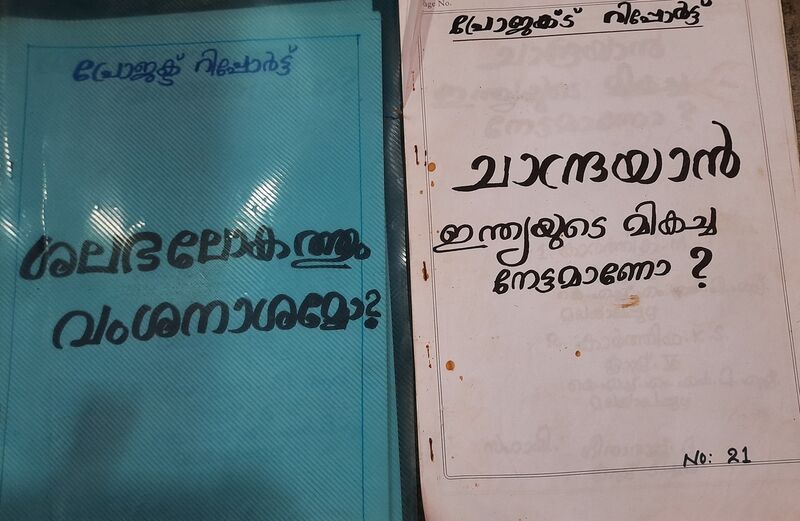 പ്രോജക്ട് റിപ്പോർട്ട്
ശലഭലോകത്തും
വംശനാശമോ?
age No.
പ്രോജക്ട് റിപ്പോർട്ട്
ചാന്ദ്രയാൻ
ഇന്ത്യയുടെ മികച്ച
നേട്ടമാണോ ?
No: 21